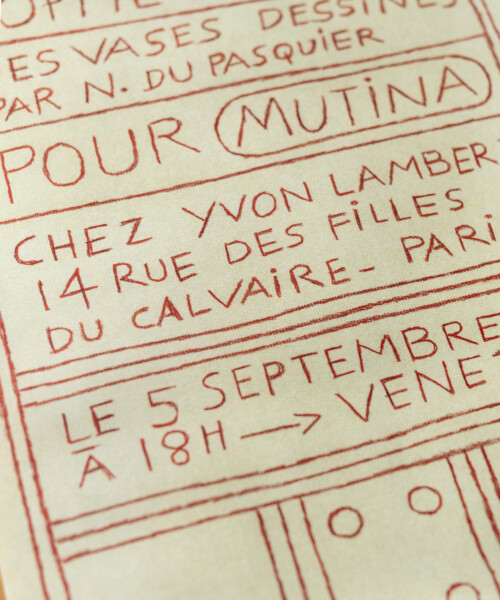 ES VASES DESSINES
PAR N. DU PASQUIER
POUR MUTINA
CHEZ YVON LAMBER
14 RUE DES FILLES
DU CALVAIRE_ PARI
LE 5 SEPTEMBRE
À 18H → VENE